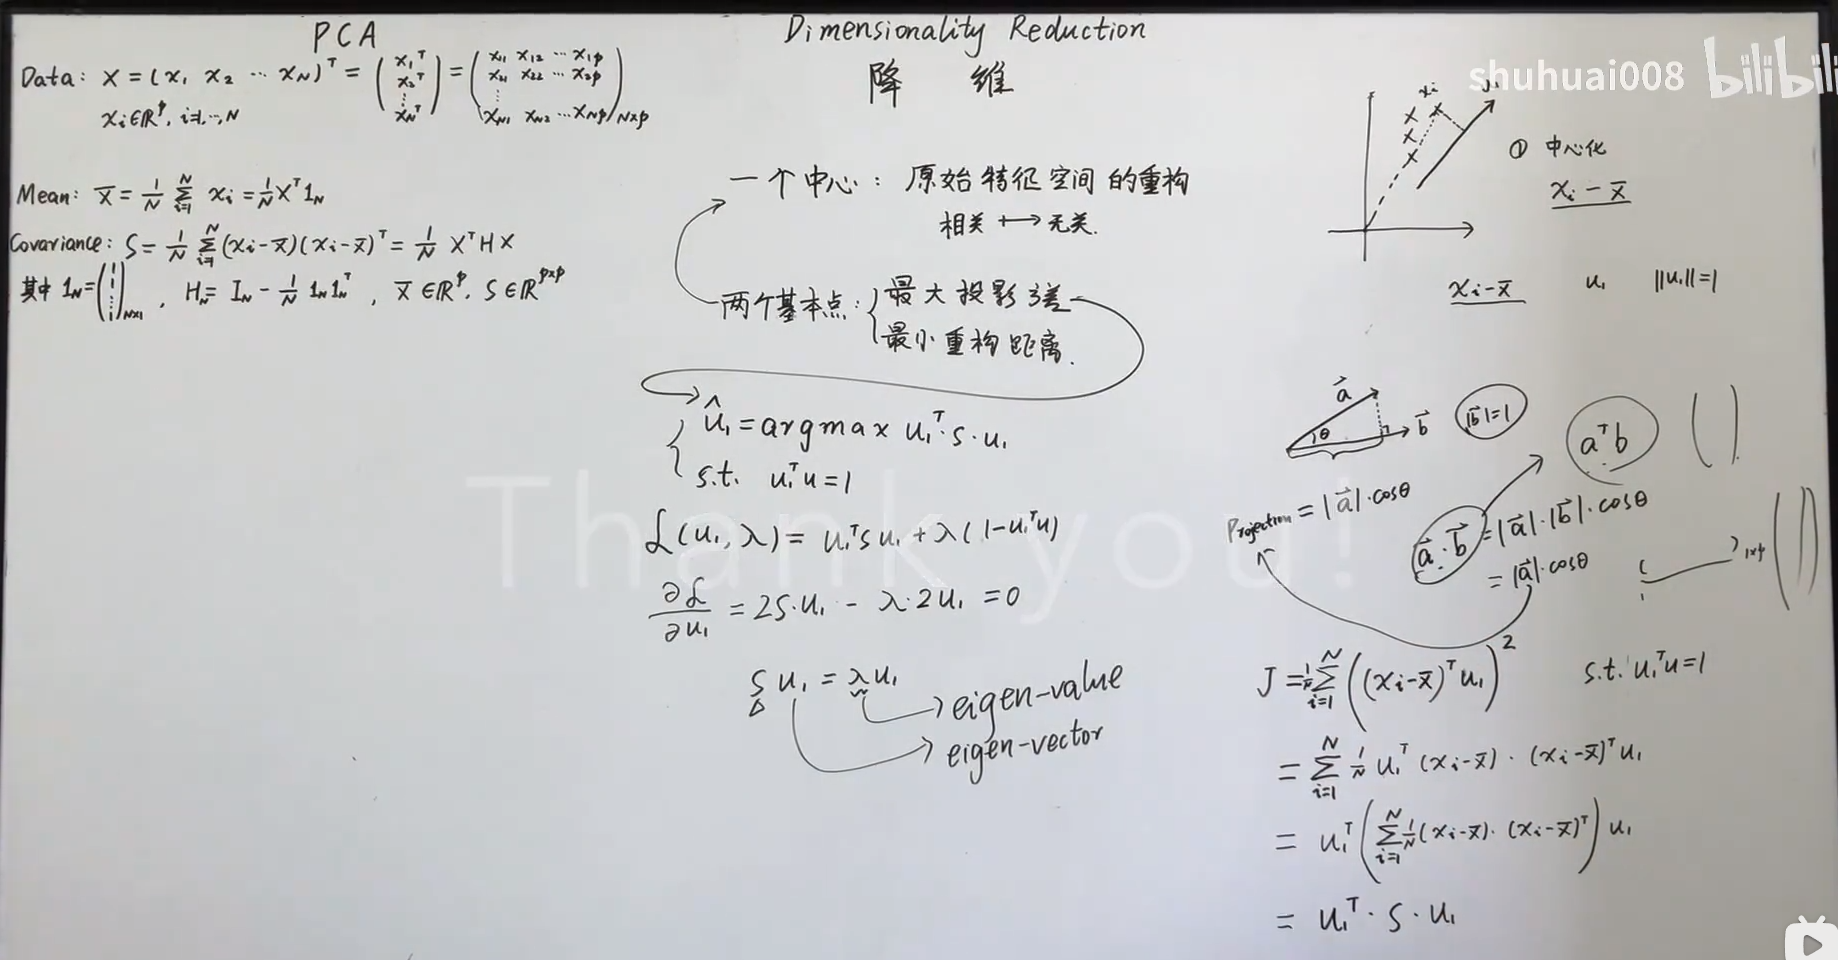 PCA
Data: X = (x₁ x₂ ⋯ x_N)ᵀ = (x₁ᵀ x₂ᵀ ⋮ x_Nᵀ) = (x₁₁ x₁₂ ⋯ x₁p
x₂₁ x₂₂ ⋯ x₂p
⋮
x_N1 x_N2 ⋯ x_Np)_N×p
xᵢ∈ℝᵖ, i=1,⋯,N
Mean: x̄ = 1/N ∑_{i=1}^N xᵢ = 1/N Xᵀ1_N
Covariance: S = 1/N ∑_{i=1}^N (xᵢ-x̄)(xᵢ-x̄)ᵀ = 1/N XᵀHX
其中 1_N = (1 ⋮ 1)_N×1, H_N = I_N - 1/N 1_N 1_Nᵀ, x̄∈ℝᵖ, S∈ℝᵖˣᵖ
Dimensionality Reduction
降 维
一个中心: 原始特征空间的重构
相关 ⟷ 无关.
两个基本点: { 最大投影方差
最小重构距离.
û₁ = argmax u₁ᵀ·S·u₁
s.t. u₁ᵀu=1
ℒ(u₁, λ) = u₁ᵀSu₁ + λ(1-u₁ᵀu)
∂ℒ/∂u₁ = 2S·u₁ - λ·2u₁ = 0
Su₁ = λu₁
eigen-value
eigen-vector
shuhuai008 bilibili
xᵢ
u₁
① 中心化
xᵢ - x̄
xᵢ-x̄ u₁ ‖u₁‖=1
a⃗ θ b⃗ |b⃗|=1
aᵀb
Projection = |a⃗|·cosθ
a⃗·b⃗ = |a⃗|·|b⃗|·cosθ
= |a⃗|·cosθ
1×p
J = 1/N ∑_{i=1}^N ((xᵢ-x̄)ᵀu₁)² s.t. u₁ᵀu=1
= ∑_{i=1}^N 1/N u₁ᵀ(xᵢ-x̄)·(xᵢ-x̄)ᵀu₁
= u₁ᵀ(∑_{i=1}^N 1/N (xᵢ-x̄)·(xᵢ-x̄)ᵀ)u₁
= u₁ᵀ·S·u₁
Thank you!